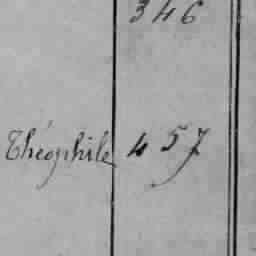 346
Théophile 457